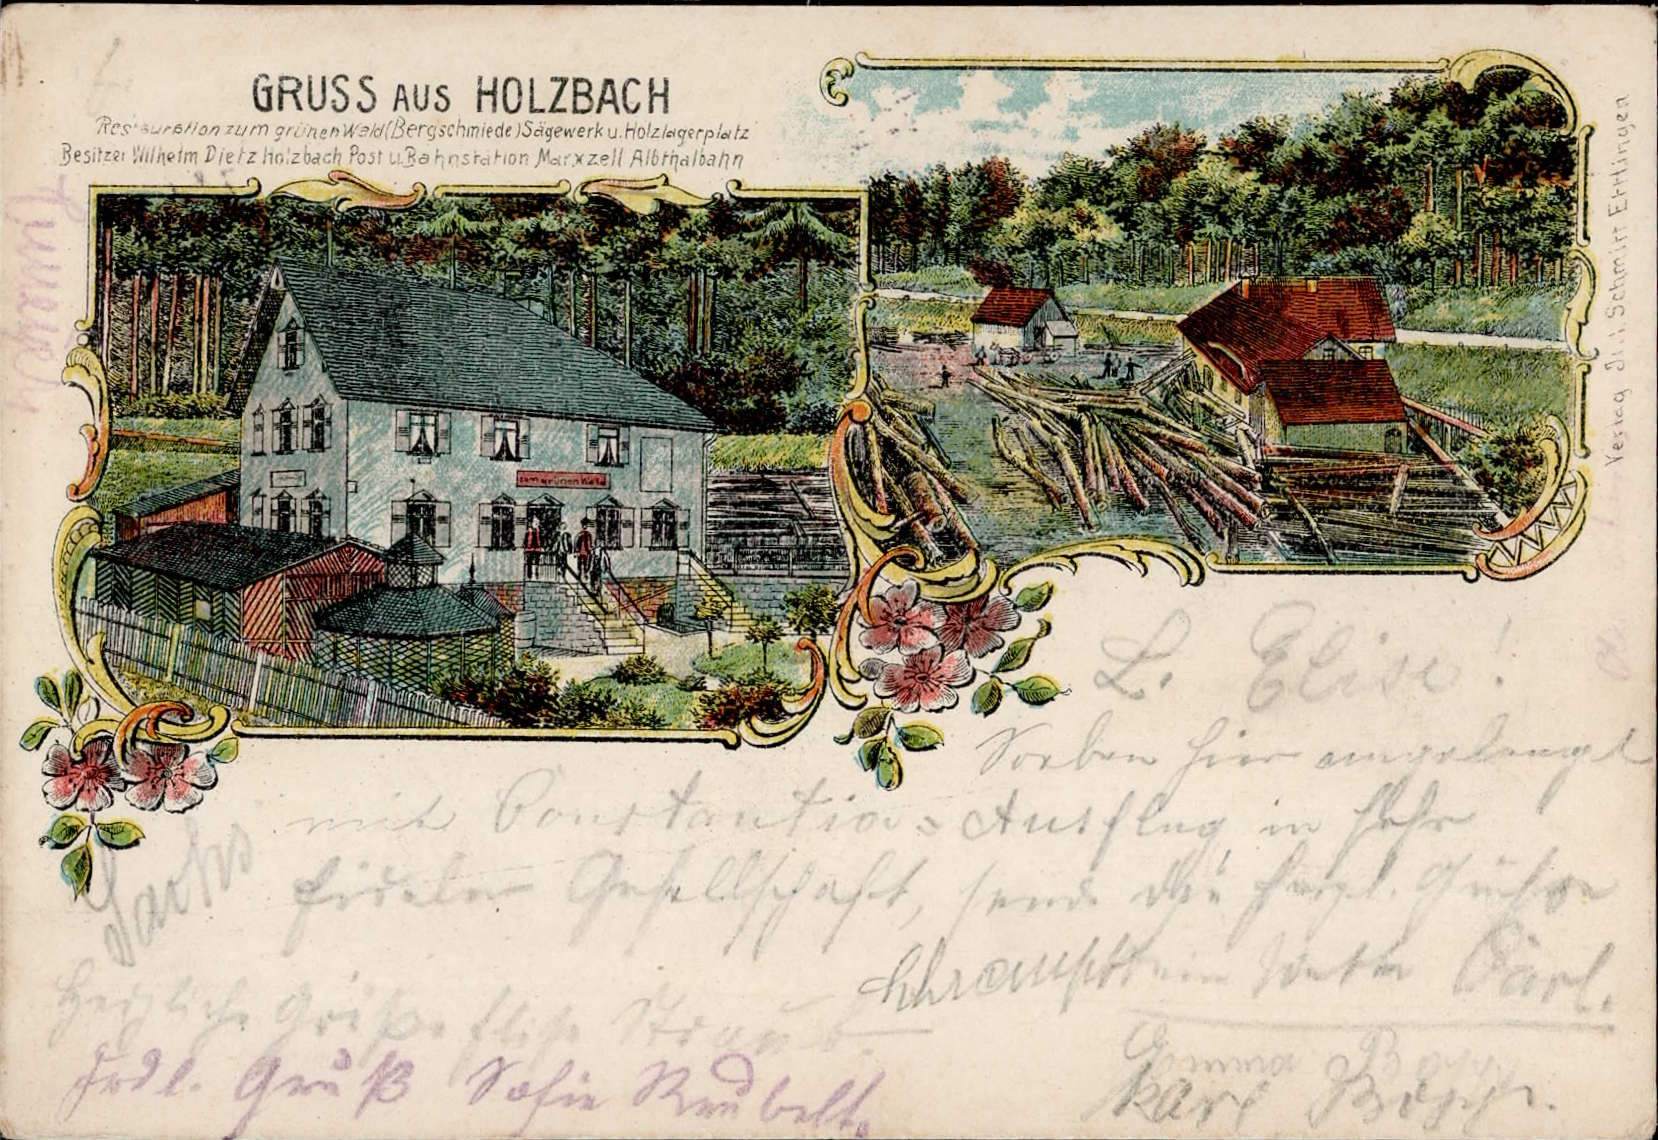 GRUSS AUS HOLZBACH
Restauration zum grünen Wald (Bergschmiede) Sägewerk u. Holzlagerplatz
Besitzer Wilhelm Dietz Holzbach Post u. Bahnstation Marxzell Albthalbahn
zum grünen Wald
Verlag J. Schmitt Ettlingen
L. Elise!
Soeben hier angelangt
mit Constantia-Ausflug in sehr
fideler Gesellschaft, sende die herzl. Grüße
dein Vetter Carl.
Herzliche Grüße
Frdl. Gruß Sofie
Emma Bopp
Karl Bopp.